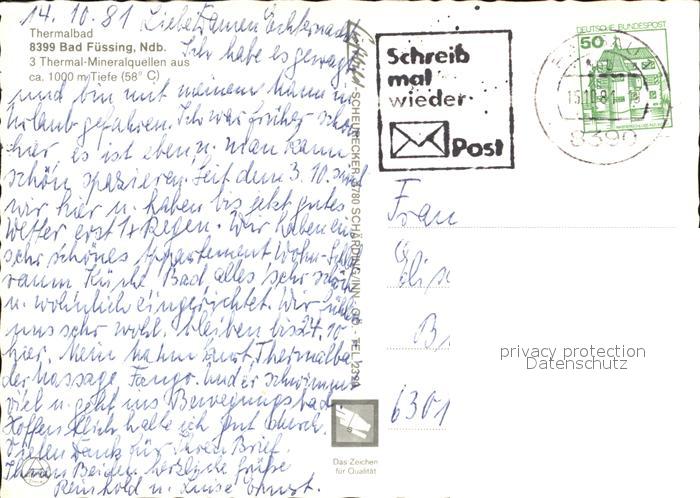 14.10.81 Liebe Damen Echternach
Thermalbad
8399 Bad Füssing, Ndb.
3 Thermal-Mineralquellen aus
ca. 1000 m Tiefe (58° C)
Ich habe es gewagt
und bin mit meinem Mann in
Urlaub gefahren. Ich war früher schon
hier es ist eben u. man kann
schön spazieren. Seit dem 3.10. sind
wir hier u. haben bis jetzt gutes
Wetter erst 1x Regen. Wir haben ein
sehr schönes Appartement Wohn-Schlaf
raum Küche Bad, alles sehr schön
u. wohnlich eingerichtet. Wir fühlen
uns sehr wohl. bleiben bis 24.10
hier. Mein Mann kurt, Thermalba
der Massage Fango. Und er schwimmt
viel u. geht ins Bewegungsbad.
Hoffentlich halte ich gut durch.
Vielen Dank für Ihren Brief.
Ihnen Beiden herzliche Grüße
Reinhold u. Luise Ernst.
SCHEURECKER, 4780 SCHÄRDING/INN, OÖ - TEL.
Das Zeichen
für Qualität
Schreib
mal
wieder
Post
DEUTSCHE BUNDESPOST
50
15.10.81
8399
Frau
Elis
B
6301
privacy protection
Datenschutz